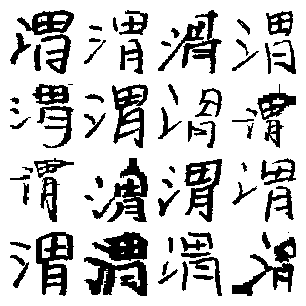 渭渭渭渭
渭渭渭渭
渭渭渭渭
渭渭渭渭